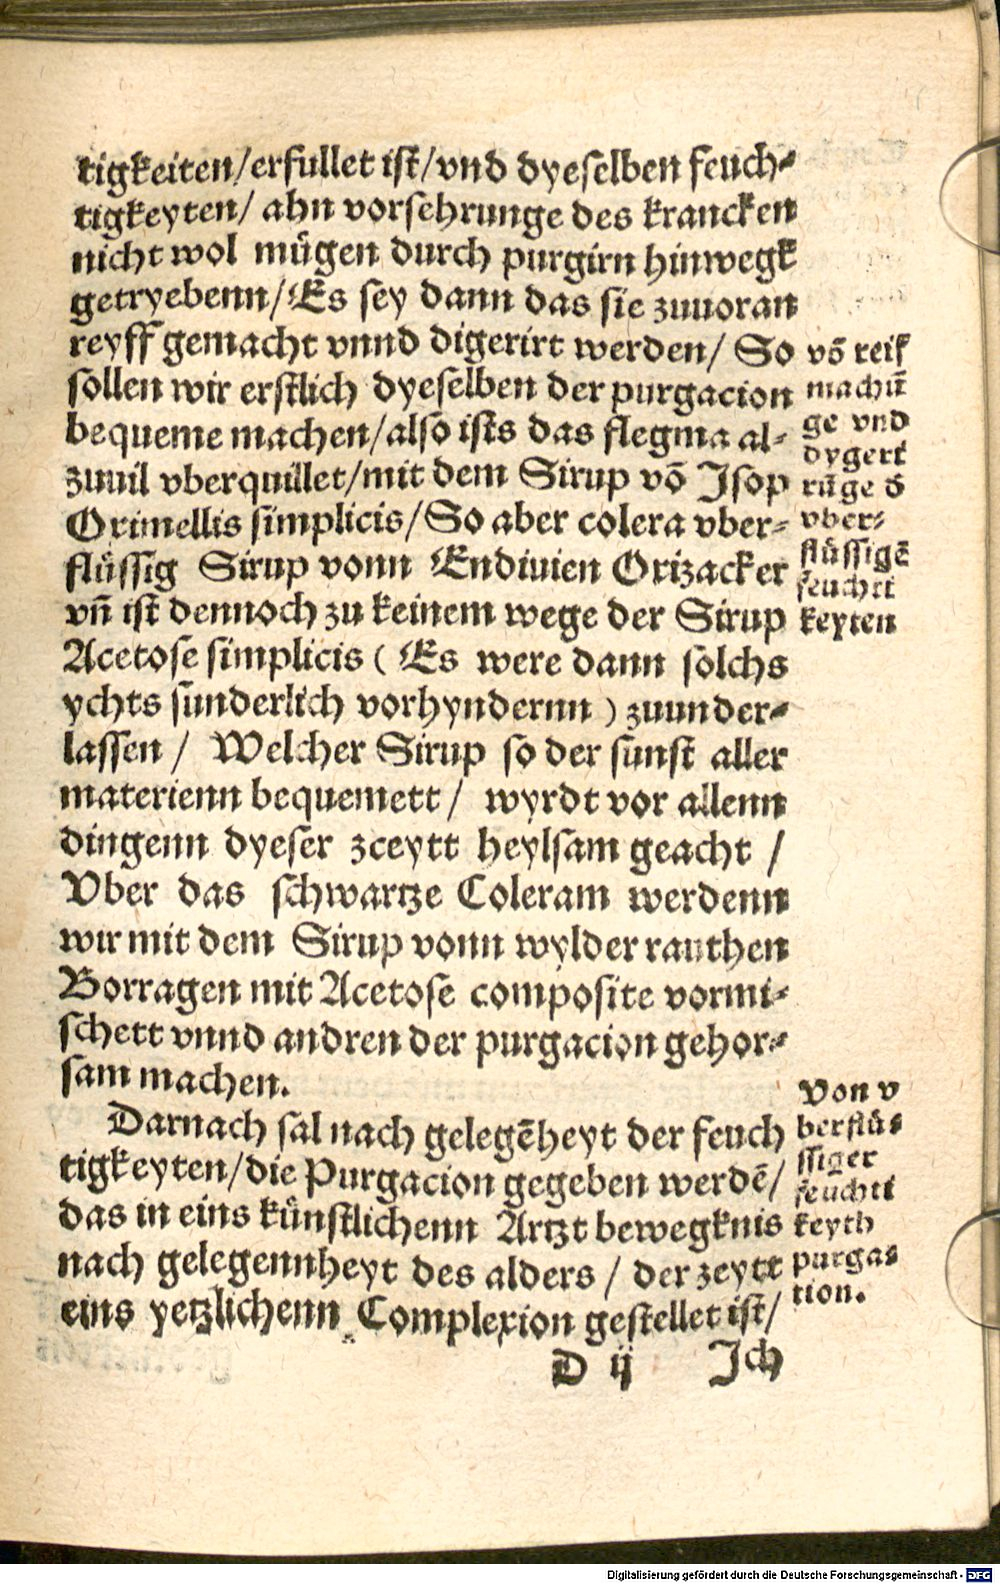 tigkeiten/erfullet ist/vnd dyeselben feuch-
tigkeyten/ ahn vorsehrunge des krancken
nicht wol mügen durch purgirn hinwegk
getryebenn/Es sey dann das sie zuuoran
reyff gemacht vnnd digerirt werden/ So
sollen wir erstlich dyeselben der purgacion
bequeme machen/also ists das flegma al-
zuuil vberquillet/mit dem Sirup vō Isop
Orimellis simplicis/So aber colera vber-
flüssig Sirup vonn Endiuien Orizacker
vn̄ ist dennoch zu keinem wege der Sirup
Acetose simplicis ( Es were dann solchs
ychts sunderlich vorhyndernn ) zuunder-
lassen / Welcher Sirup so der sunst aller
materienn bequemett / wyrdt vor allenn
dingenn dyeser zceytt heylsam geacht /
Vber das schwartze Coleram werdenn
wir mit dem Sirup vonn wylder rauthen
Borragen mit Acetose composite vormi-
schett vnnd andren der purgacion gehor-
sam machen.
Darnach sal nach gelegēheyt der feuch
tigkeyten/die Purgacion gegeben werdē/
das in eins künstlichenn Artzt bewegknis
nach gelegennheyt des alders / der zeytt
eins yetzlichenn Complexion gestellet ist/
D ij Ich
vō reif
machū
ge vnd
dygert
rūge d̄
vber-
flüssigē
feuchti
keyten
Von v
berflü-
ssiger
feuchti
keyth
purga-
tion.
Digitalisierung gefördert durch die Deutsche Forschungsgemeinschaft - DFG